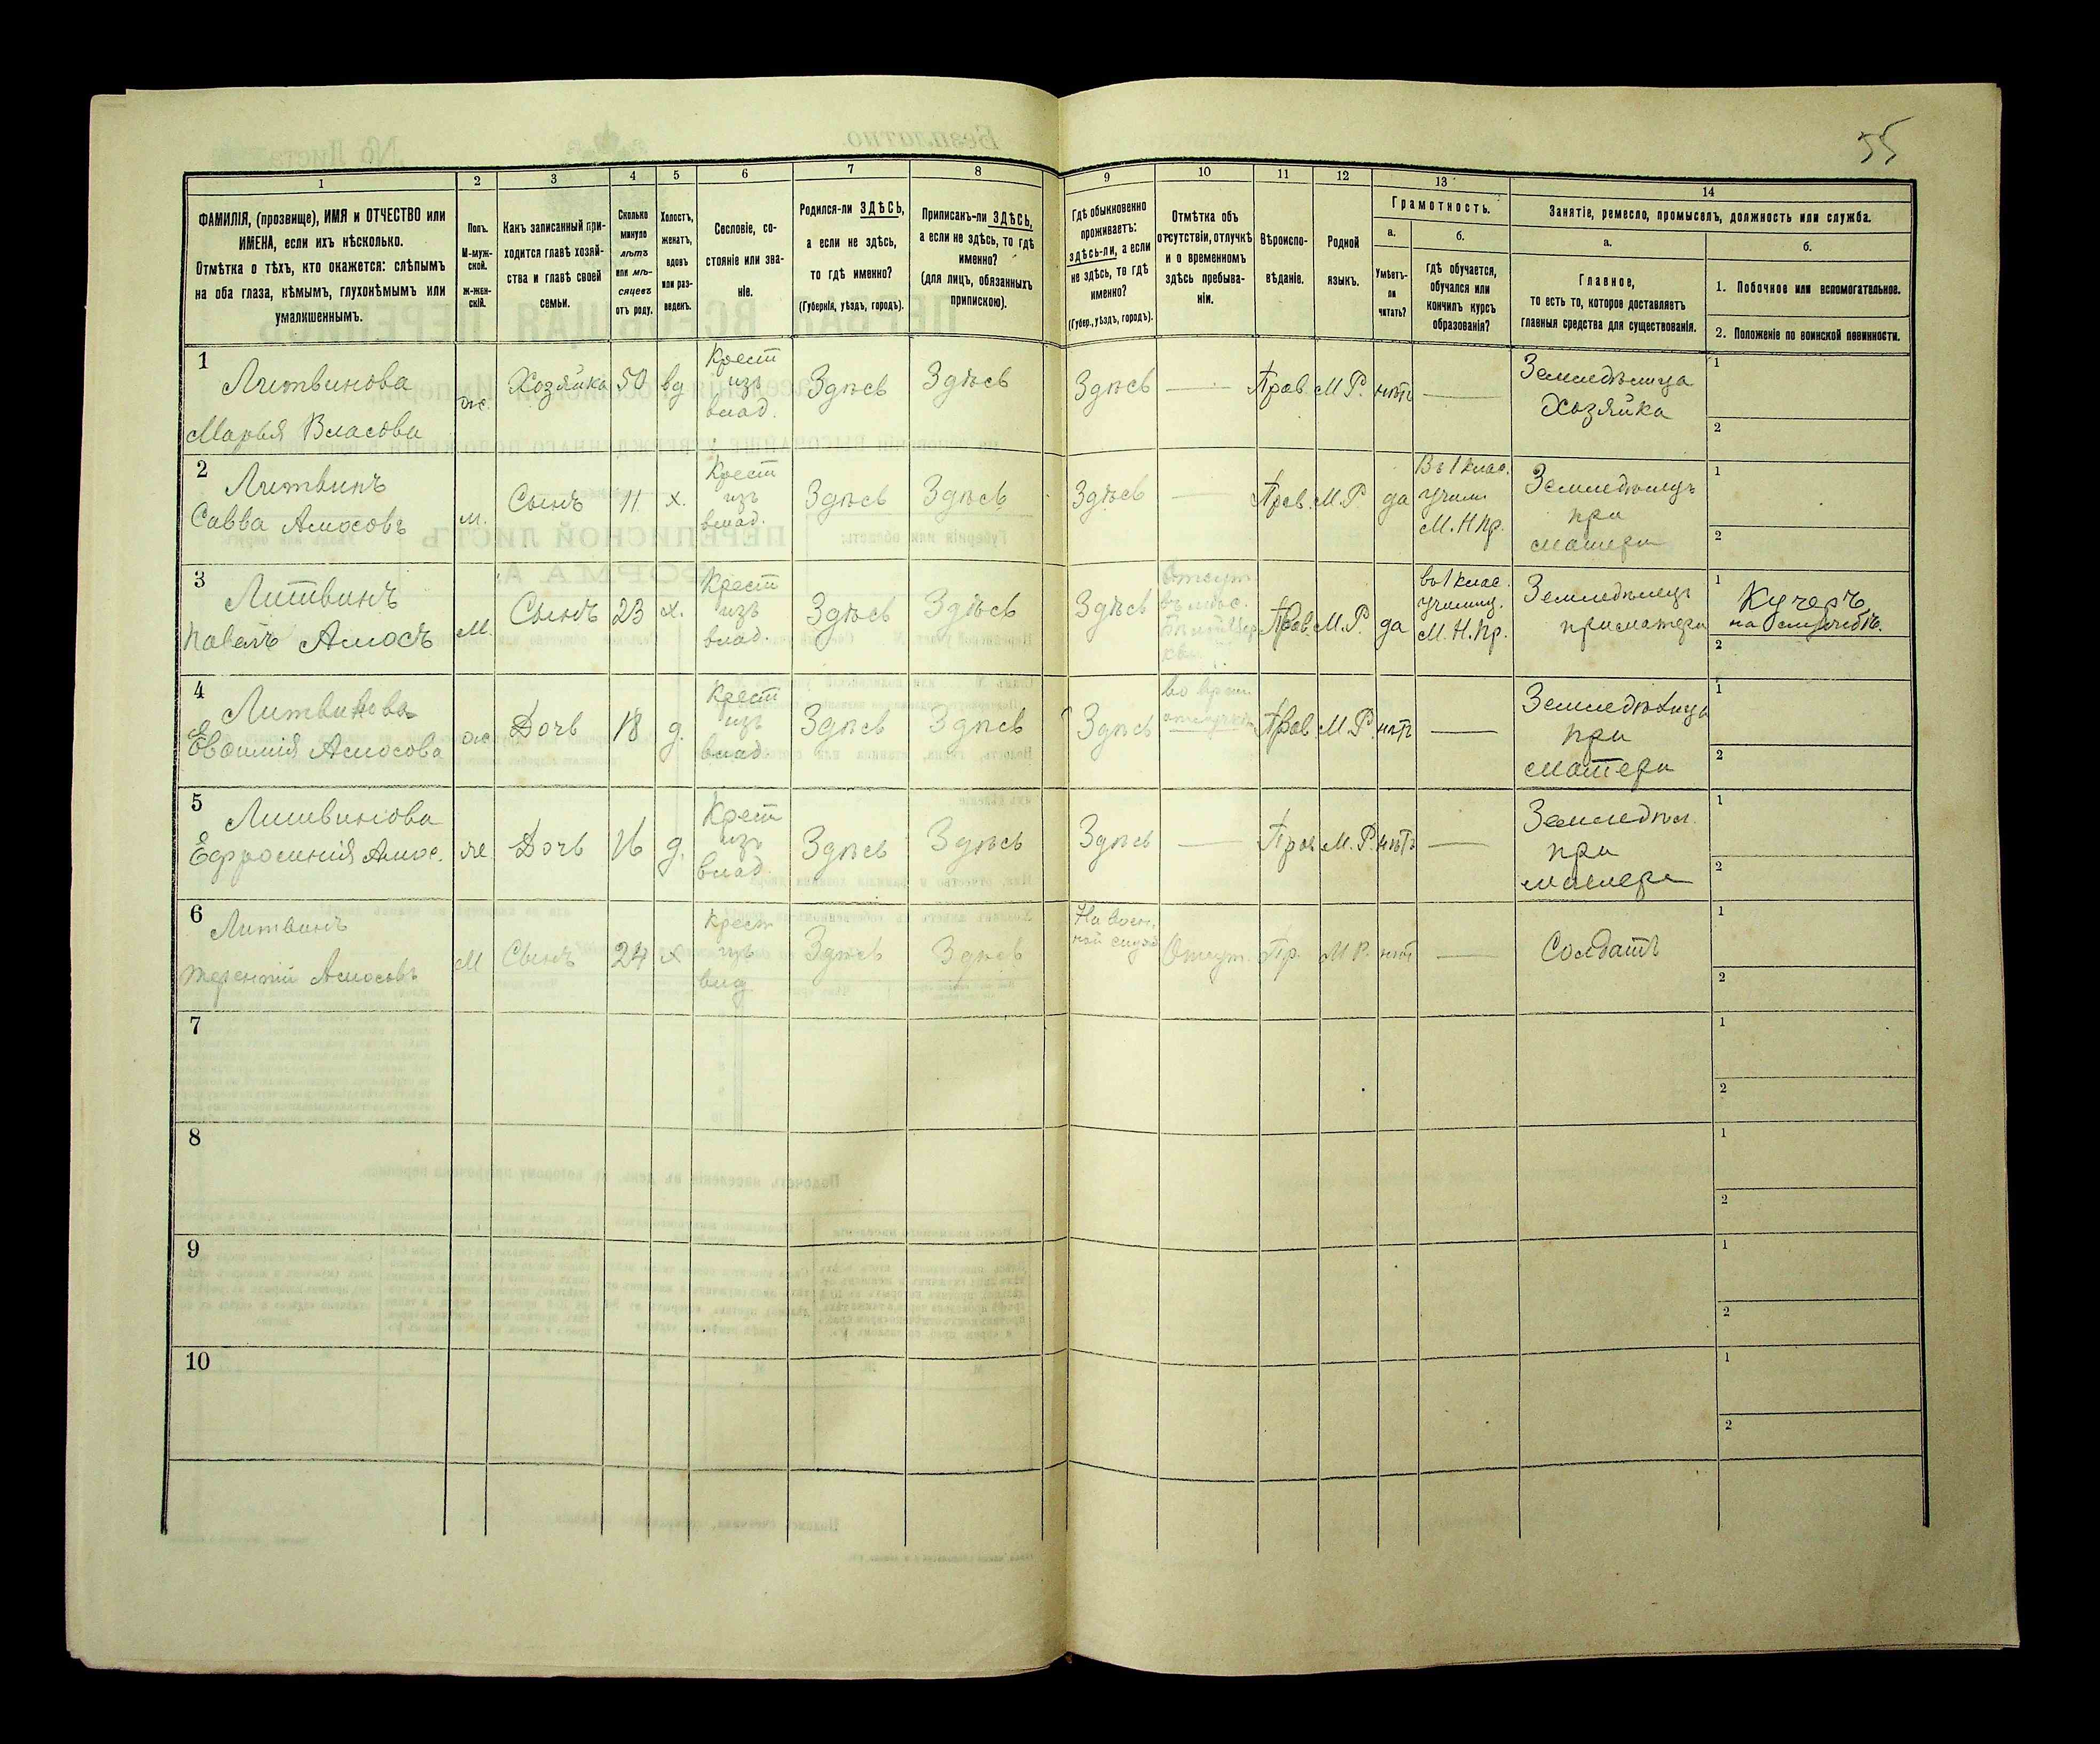 55
1
2
3
4
5
6
7
8
9
10
11
12
13
14
ФАМИЛІЯ, (прозвище), ИМЯ и ОТЧЕСТВО или
ИМЕНА, если ихъ нѣсколько.
Отмѣтка о тѣхъ, кто окажется: слѣпымъ
на оба глаза, нѣмымъ, глухонѣмымъ или
умалишеннымъ.
Полъ.
М-муж-
ской.
ж-жен-
скій.
Какъ записанный при-
ходится главѣ хозяй-
ства и главѣ своей
семьи.
Сколько
минуло
лѣтъ
или мѣ-
сяцевъ
отъ роду.
Холостъ,
женатъ,
вдовъ
или раз-
веденъ.
Сословіе, со-
стояніе или зва-
ніе.
Родился-ли ЗДѢСЬ,
а если не здѣсь,
то гдѣ именно?
(Губернія, уѣздъ, городъ).
Приписанъ-ли ЗДѢСЬ,
а если не здѣсь, то гдѣ
именно?
(для лицъ, обязанныхъ
припискою).
Гдѣ обыкновенно
проживаетъ:
здѣсь-ли, а если
не здѣсь, то гдѣ
именно?
(Губер., уѣздъ, городъ).
Отмѣтка объ
отсутствіи, отлучкѣ
и о временномъ
здѣсь пребыва-
ніи.
Вѣроиспо-
вѣданіе.
Родной
языкъ.
Грамотность.
а.
Умѣетъ-
ли
читать?
б.
гдѣ обучается,
обучался или
кончилъ курсъ
образованія?
Занятіе, ремесло, промыселъ, должность или служба.
а.
Главное,
то есть то, которое доставляетъ
главныя средства для существованія.
б.
1. Побочное или вспомогательное.
2. Положеніе по воинской повинности.
1
Литвинова
Марья Власова
ж.
Хозяйка
50
вд
Крест
изъ
влад.
Здѣсь
Здѣсь
Здѣсь
—
Прав.
М.Р.
нѣтъ
—
Земледѣлица
Хозяйка
1
2
2
Литвинъ
Савва Амосовъ
м.
Сынъ
11
х.
Крест
изъ
влад.
Здѣсь
Здѣсь
Здѣсь
—
Прав.
М.Р.
да
Въ 1 клас.
Учили
М.Н.Пр.
Земледѣлецъ
при
матери
1
2
3
Литвинъ
Павелъ Амосъ
М.
Сынъ
23
х.
Крест
изъ
влад.
Здѣсь
Здѣсь
Здѣсь
Отсут.
Прав.
М.Р.
да
въ 1 клас.
Училищ.
М.Н.Пр.
Земледѣлецъ
при матери
1
Кучеръ
на службѣ.
2
4
Литвинова
Амосова
ж
Дочь
18
д.
Крест
изъ
влад.
Здѣсь
Здѣсь
Здѣсь
во врем.
отлучкѣ
Прав
М.Р.
нѣтъ
—
Земледѣлица
при
матери
1
2
5
Литвинова
Ефросинія Амос.
ж
Дочь
16
д.
Крест
изъ
влад.
Здѣсь
Здѣсь
Здѣсь
—
Прав
М.Р.
нѣтъ
—
Земледѣл.
при
матери
1
2
6
Литвинъ
Терентій Амосовъ
М
Сынъ
24
х
Крест
изъ
влад
Здѣсь
Здѣсь
На воен-
ной служ
Отсут.
Пр.
М.Р.
нѣт
—
Солдатъ
1
2
7
1
2
8
1
2
9
1
2
10
1
2